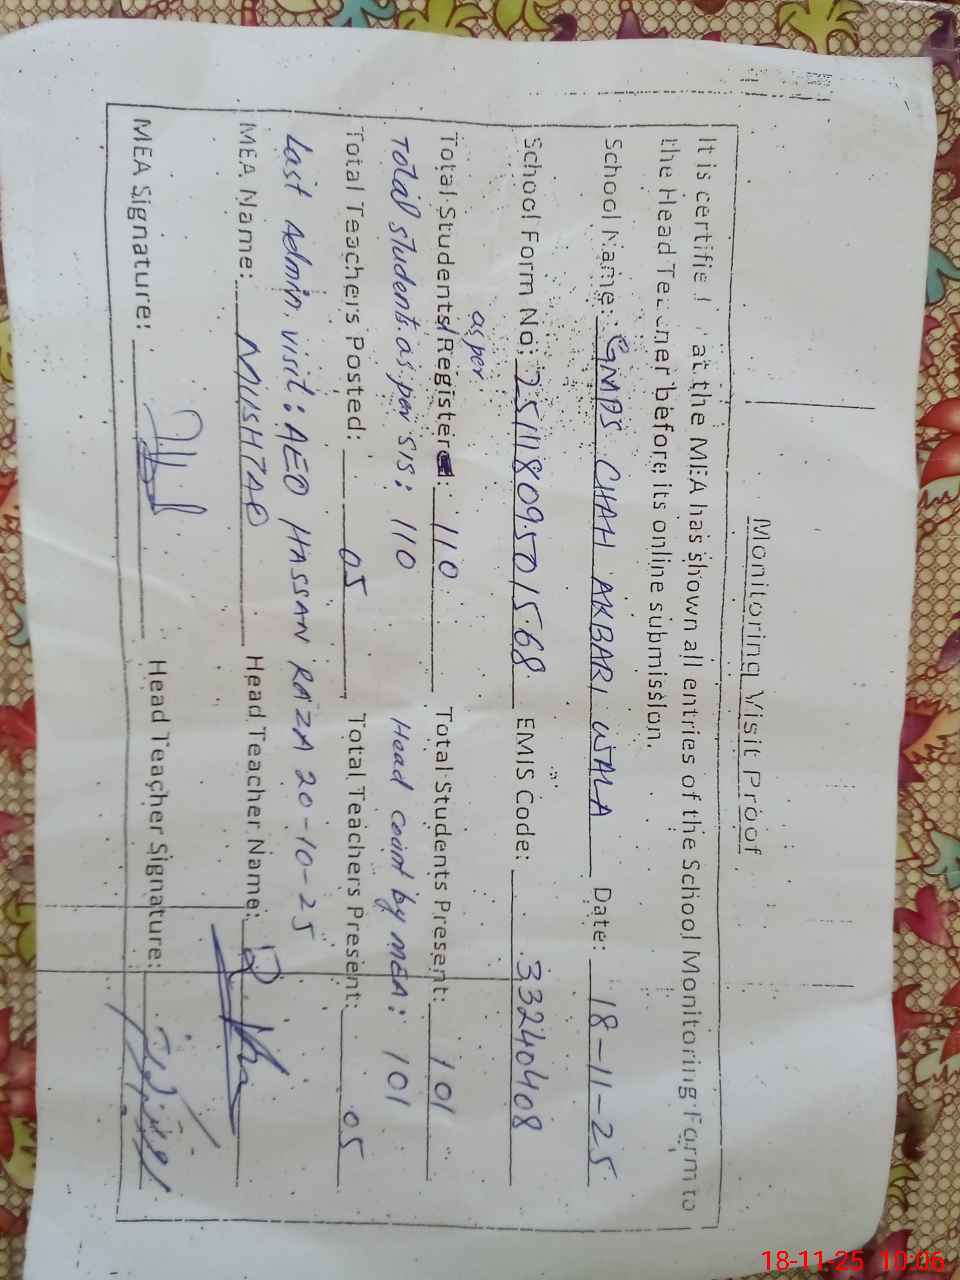 Monitoring Visit Proof
It is certified at the MEA has shown all entries of the School Monitoring Form to
the Head Teacher before its online submission.
School Name: GMPS CHAH AKBARI WALA Date: 18-11-25
School Form No: 2511180950 1568 EMIS Code: 33240408
as per
Total Students Register: 110 Total Students Present: 101
Total students as per SIS: 110 Head count by MEA: 101
Total Teachers Posted: 05 Total Teachers Present: 05
Last Admin visit: AEO HASSAN RAZA 20-10-25
MEA Name: MUSHTAQ Head Teacher Name:
MEA Signature: Head Teacher Signature:
18-11-25 10:06